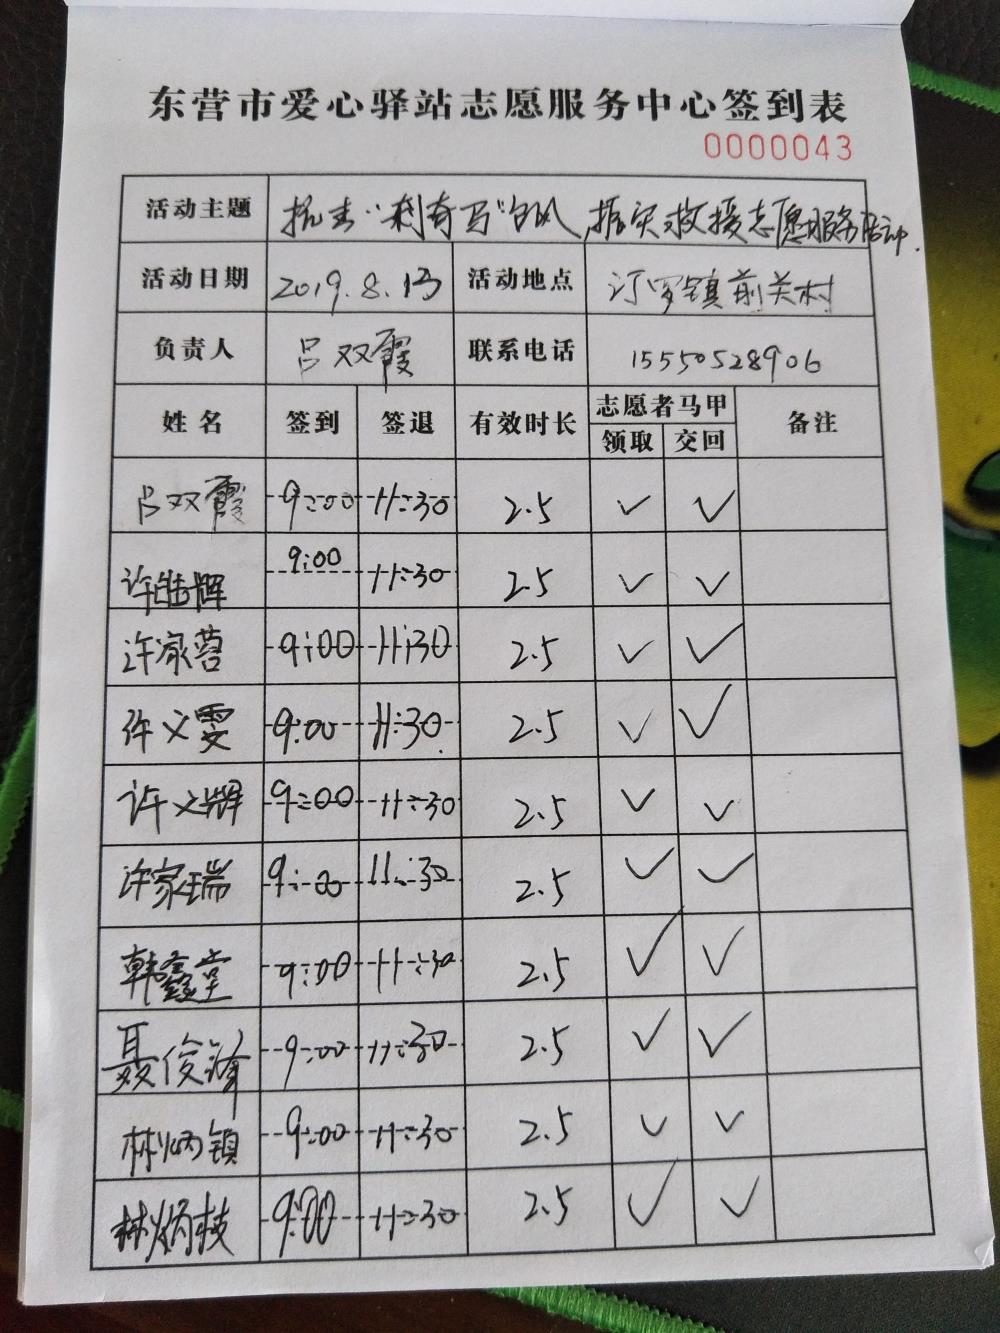 东营市爱心驿站志愿服务中心签到表
0000043
活动主题 抗击“利奇马”台风,抢灾救援志愿服务活动.
活动日期 2019.8.13 活动地点 汀罗镇前关村
负责人 吕双霞 联系电话 15550528906
姓名 签到 签退 有效时长 志愿者马甲 备注
领取 交回
吕双霞 9:00 11:30 2.5 ✓ ✓
许皓辉 9:00 11:30 2.5 ✓ ✓
许家蓉 9:00 11:30 2.5 ✓ ✓
许文雯 9:00 11:30 2.5 ✓ ✓
许文辉 9:00 11:30 2.5 ✓ ✓
许家瑞 9:00 11:30 2.5 ✓ ✓
韩鑫堂 9:00 11:30 2.5 ✓ ✓
聂俊峰 9:00 11:30 2.5 ✓ ✓
林炳镇 9:00 11:30 2.5 ✓ ✓
林炳枝 9:00 11:30 2.5 ✓ ✓